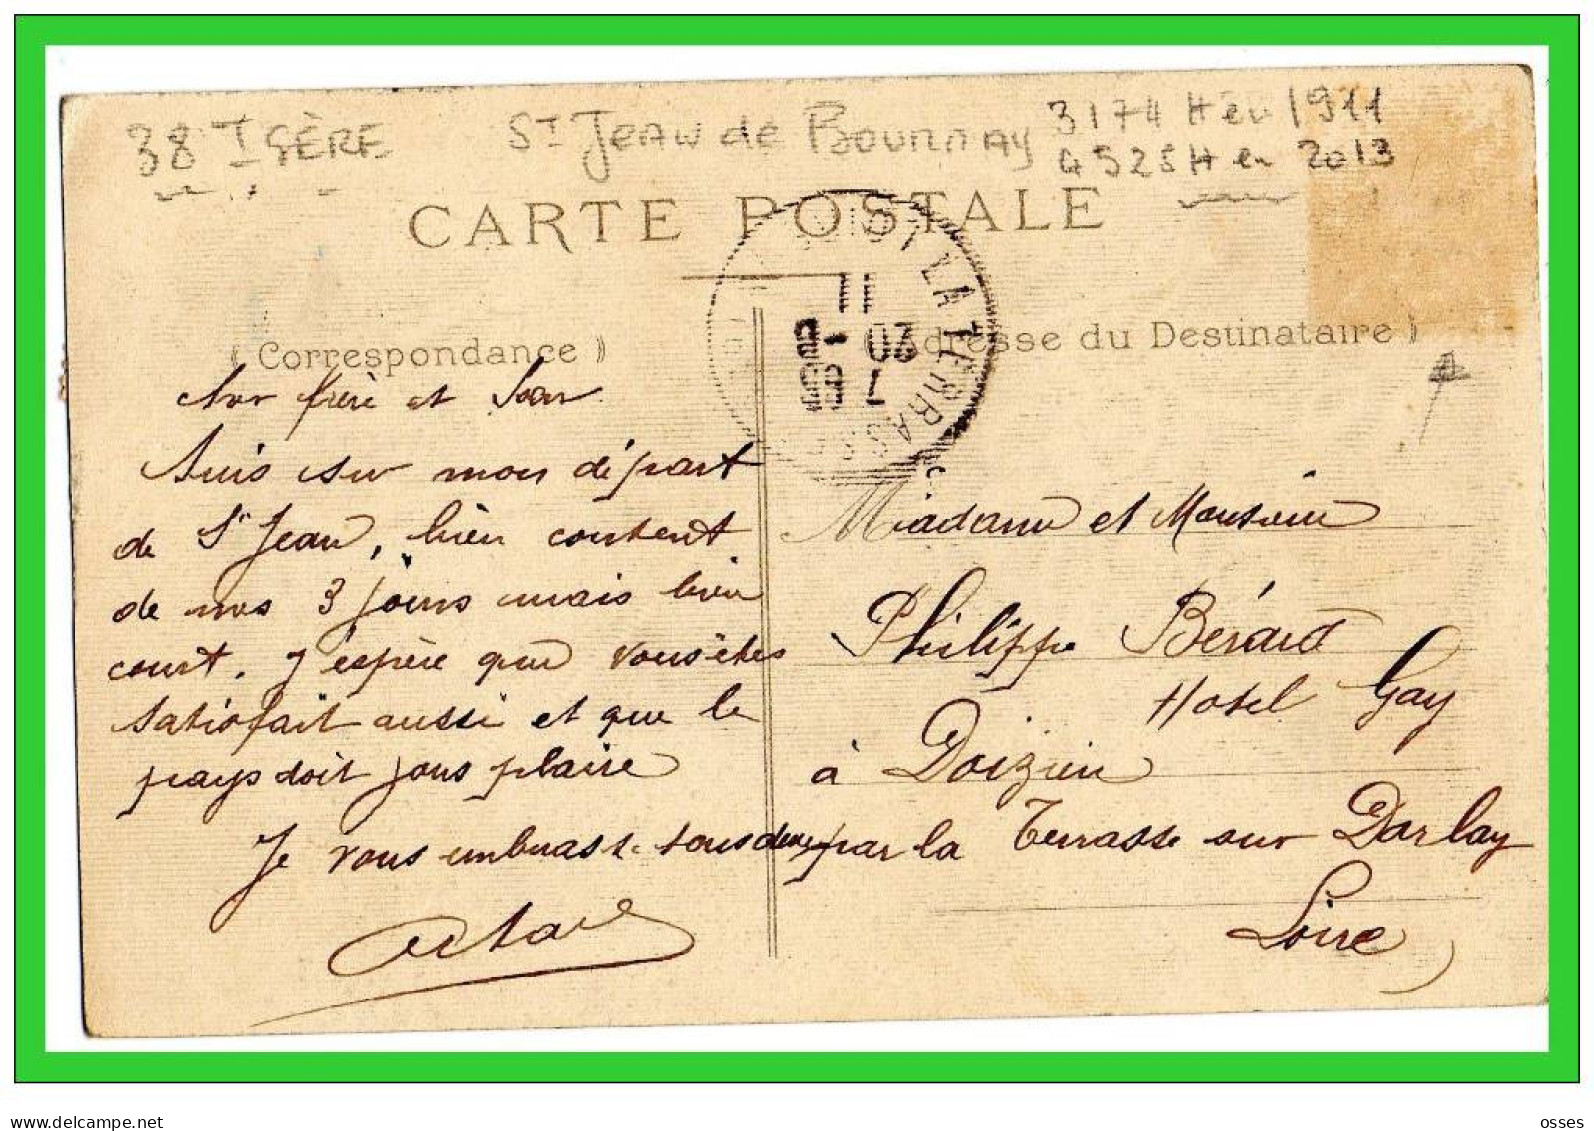 38 ISÈRE ST JEAN de BOURNAY 3174 H en 1911
4525 H en 2013
CARTE POSTALE
(Correspondance)
Adresse du Destinataire)
LA TERRASSE
11
20 - 8
frère et Soeur
Suis sur mon départ
de St Jean, bien content
de mes 3 jours mais bien
court. J'espère que vous êtes
satisfait aussi et que le
pays doit vous plaire
Je vous embrasse tous deux
Octave
Madame et Monsieur
Philippe Bérard
Hotel Gay
à Doizieu
par la Terrasse sur Dorlay
Loire
www.delcampe.net
osses